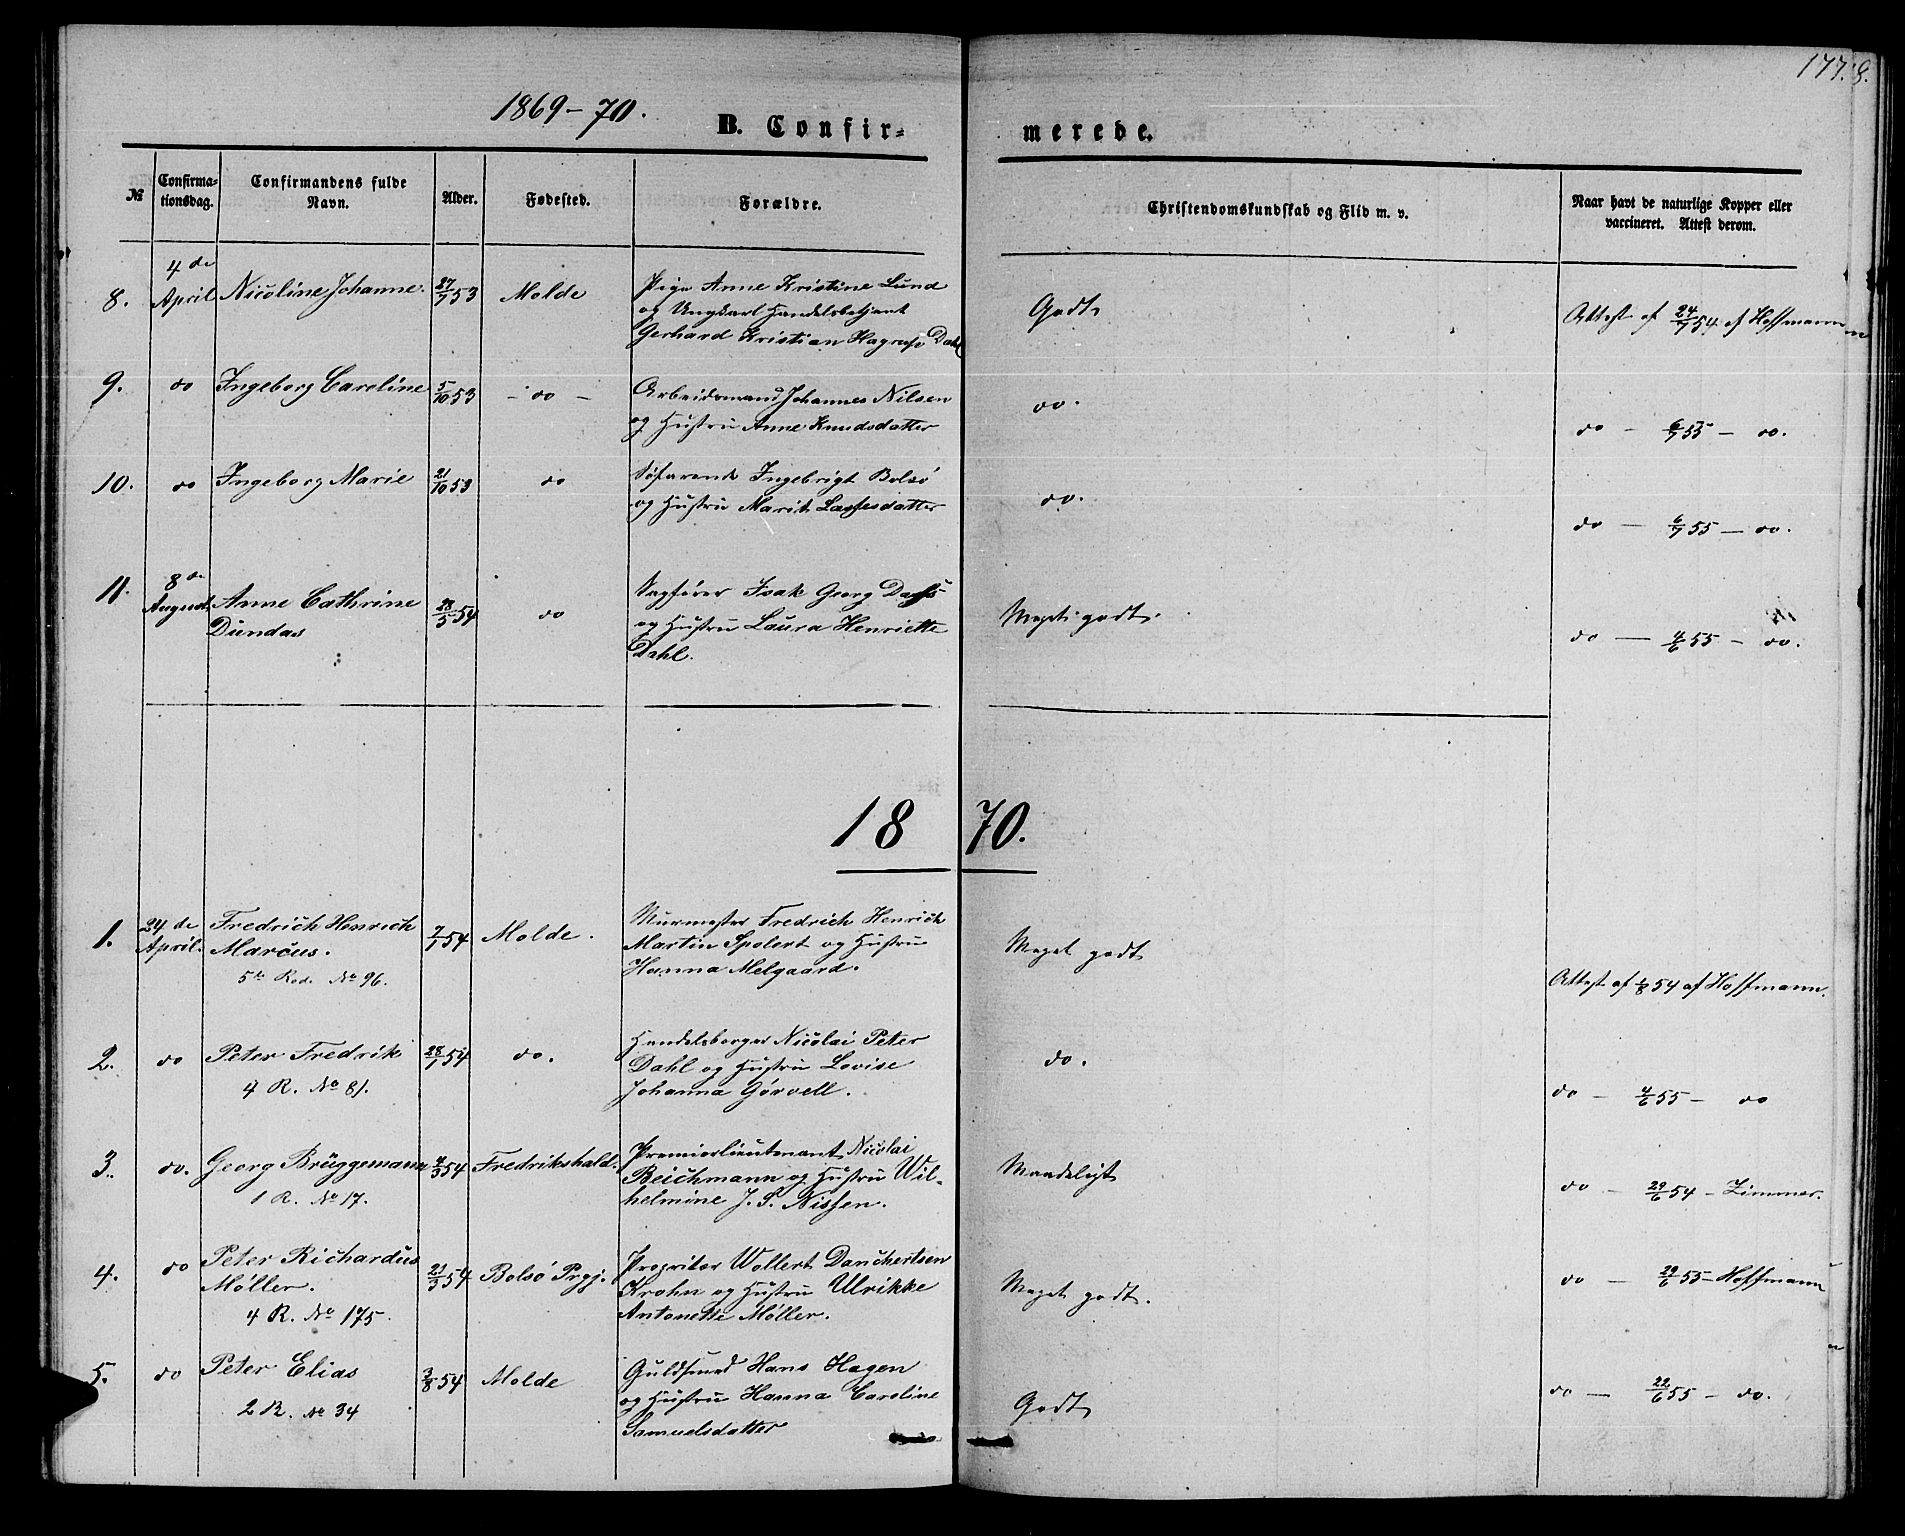 177.
8.
1869-70.
B. Confir=
merede.
№
Confirma-
tionsdag.
Confirmandens fulde
Navn.
Alder.
Fødested.
Forældre.
Christendomskundskab og Flid m. v.
Naar havt de naturlige Kopper eller
vaccineret. Attest derom.
8.
4de
April
Nicoline Johanne.
27/7 53
Molde
Pige Anne Kristine Lund
og Ungkarl Handelsbetjent
Gerhard Kristian Hagrup Dahl
Godt
Attest af 24/7 54 af Hoffmann
9.
do
Ingeborg Caroline
5/10 53
- do -
Arbeidsmand Johannes Nilsen
og Hustru Anne Knudsdatter
do.
do - 6/7 55 - do.
10.
do
Ingeborg Marie
21/10 53
do
Søfarende Ingebrigt Bolsø
og Hustru Marit Lassesdatter
do.
do - 6/7 55 - do.
11.
8de
August.
Anne Cathrine
Dundas
28/5 54
do
Sagfører Isak Georg Dass
og Hustru Laura Henriette
Dahl.
Meget godt.
do - 4/6 55 - do.
18 70.
1.
24de
April.
Fredrich Henrich
Marcus.
5te Rod. No 96.
7/1 54
Molde.
Murmester Fredrich Henrich
Martin Spolert og Hustru
Hanna Melgaard.
Meget godt
Attest af 1/8 54 af Hoffmann.
2.
do
Peter Fredrik
4 R. No 81.
28/1 54
do.
Handelsborger Nicolai Peter
Dahl og Hustru Lovise
Johanna Gørvell.
do.
do - 4/6 55 - do
3.
do.
Georg Brüggemann
1 R. No 17.
4/3 54
Fredrikshald.
Premierlieutenant Nicolai
Reichmann og Hustru Wil-
helmine J. S. Nissen.
Maadeligt
do - 29/6 54 - Zimmer.
4.
do
Peter Richardus
Møller.
4 R. No 175.
21/3 54
Bolsø Prgj.
Propritær Wollert Danchertsen
Krohn og Hustru Ulrikke
Antonette Møller.
Meget godt.
do - 29/6 55 - Hoffmann
5.
do
Peter Elias
2 R. No 34
3/8 54
Molde
Guldsmed Hans Hagen
og Hustru Hanna Caroline
Samuelsdatter
Godt
do - 22/6 55 - do.